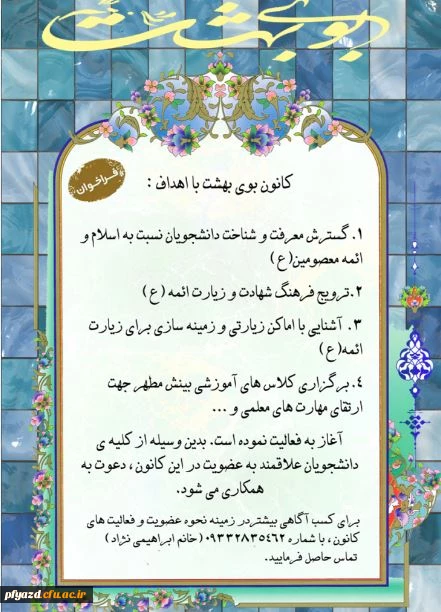 بوی بهشت
فراخوان
کانون بوی بهشت با اهداف :
۱. گسترش معرفت و شناخت دانشجویان نسبت به اسلام و
ائمه معصومین(ع)
۲.ترویج فرهنگ شهادت و زیارت ائمه (ع)
۳. آشنایی با اماکن زیارتی و زمینه سازی برای زیارت
ائمه(ع)
۴.برگزاری کلاس های آموزشی بینش مطهر جهت
ارتقای مهارت های معلمی و ...
آغاز به فعالیت نموده است. بدین وسیله از کلیه ی
دانشجویان علاقمند به عضویت در این کانون ، دعوت به
همکاری می شود.
برای کسب آگاهی بیشتردر زمینه نحوه عضویت و فعالیت های
کانون ، با شماره ۰۹۳۳۲۸۳۵۴۶۲ (خانم ابراهیمی نژاد)
تماس حاصل فرمایید.
pfyazd.cfu.ac.ir